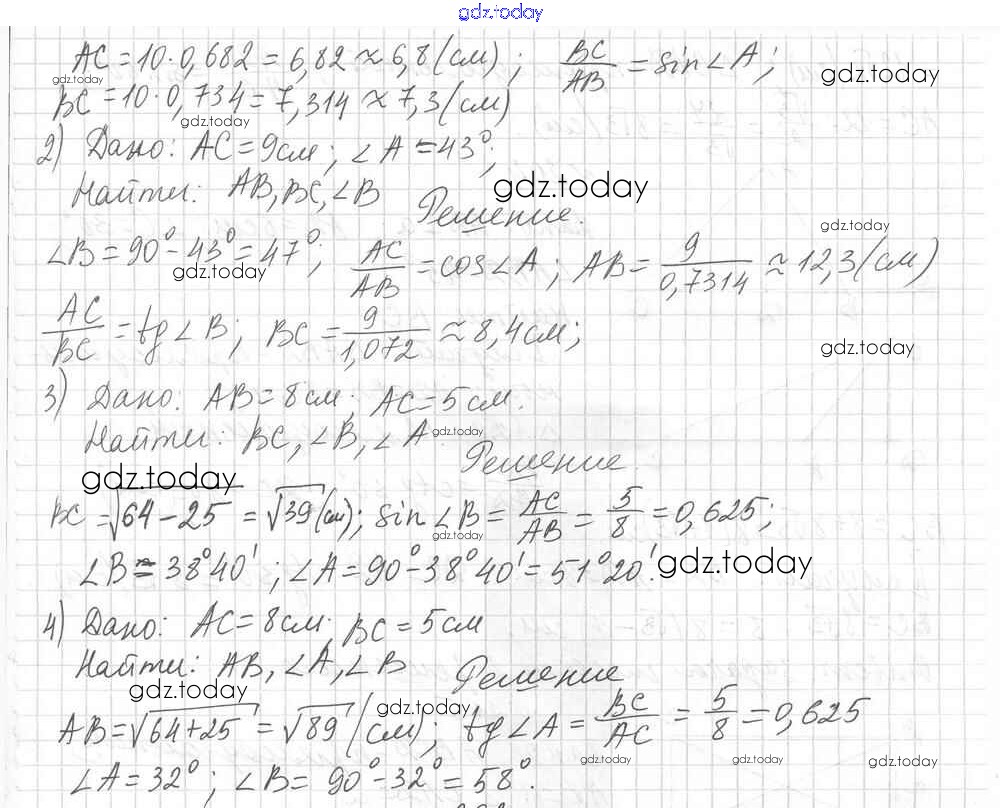 gdz.today
AC = 10·0,682 = 6,82 ≈ 6,8 (см); BC/AB = sin∠A; gdz.today
gdz.today
BC = 10·0,734 = 7,314 ≈ 7,3 (см)
gdz.today
2) Дано: AC = 9см; ∠A = 43°;
Найти: AB, BC, ∠B gdz.today
Решение.
gdz.today
∠B = 90° - 43° = 47°; AC/AB = cos∠A; AB = 9/0,7314 ≈ 12,3 (см)
gdz.today
AC/BC = tg∠B; BC = 9/1,072 ≈ 8,4см; gdz.today
3) Дано: AB = 8см; AC = 5см.
Найти: BC, ∠B, ∠A gdz.today
Решение
gdz.today
BC = √64-25 = √39 (см); sin∠B = AC/AB = 5/8 = 0,625;
gdz.today
∠B = 38°40'; ∠A = 90° - 38°40' = 51°20'. gdz.today
4) Дано: AC = 8см; BC = 5см
Найти: AB, ∠A, ∠B
Решение
gdz.today
gdz.today
AB = √64+25 = √89 (см); tg∠A = BC/AC = 5/8 = 0,625
∠A = 32°; ∠B = 90° - 32° = 58°. gdz.today gdz.today gdz.today